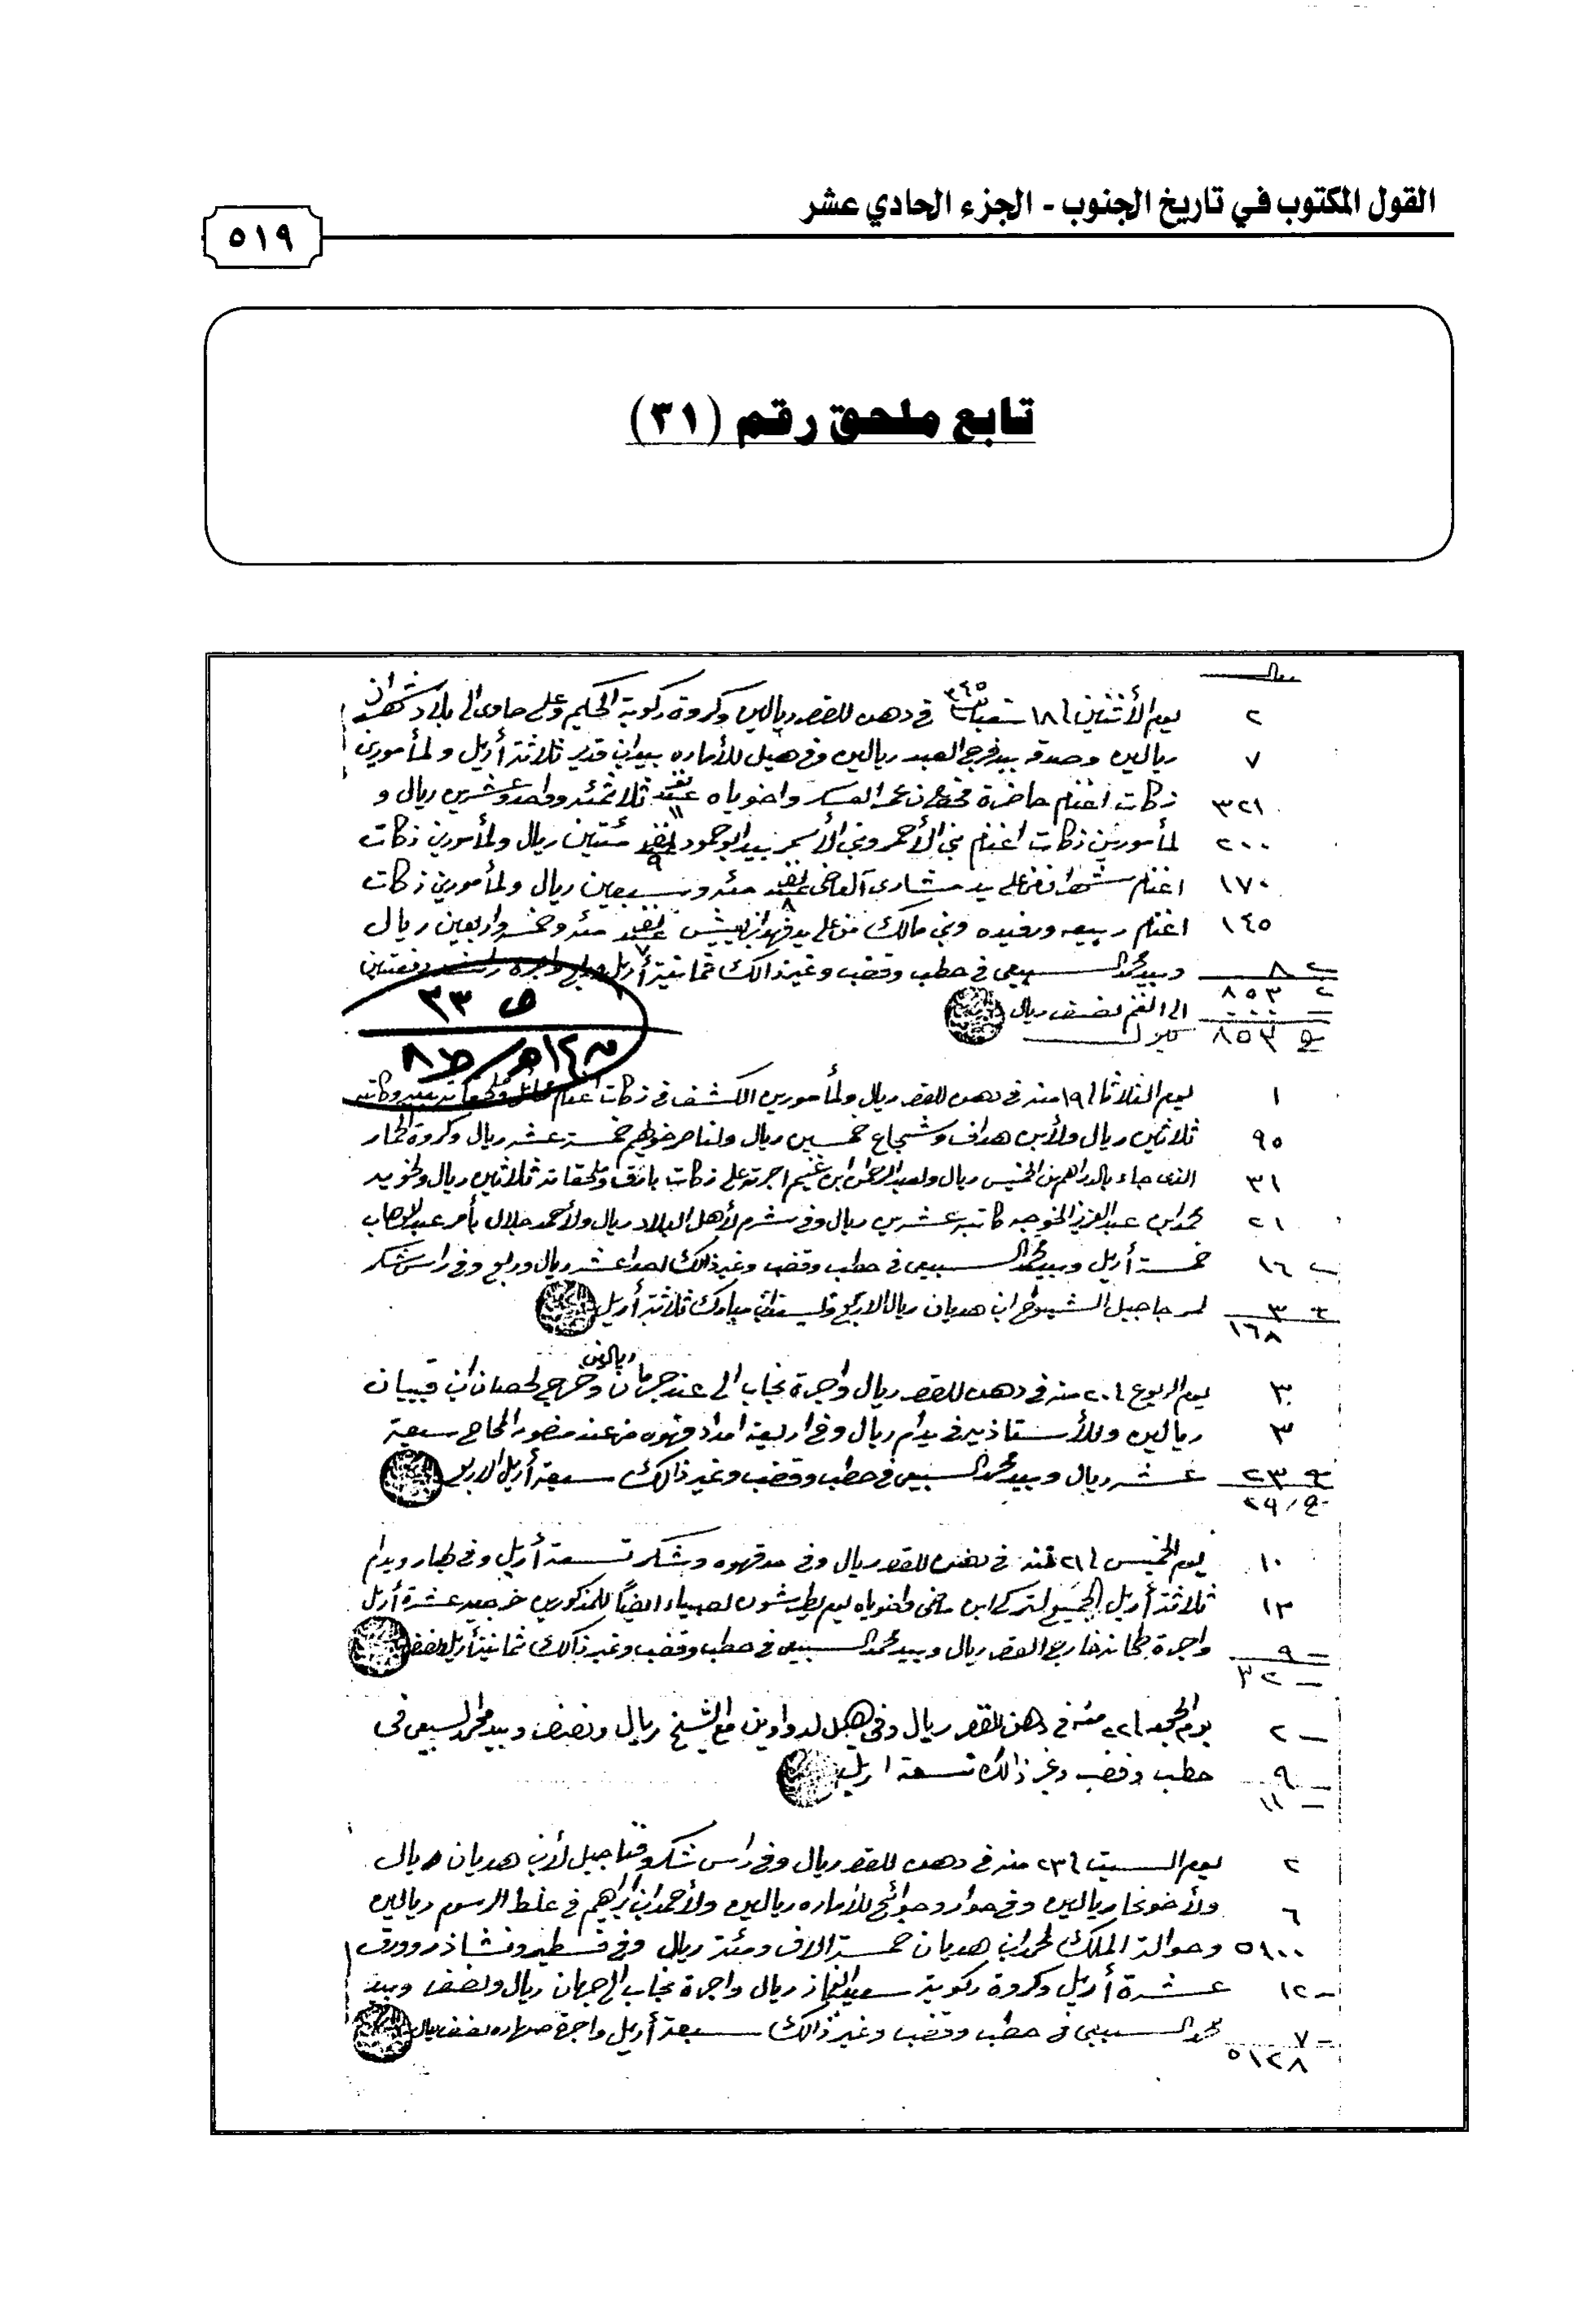 القول المكتوب في تاريخ الجنوب - الجزء الحادي عشر
٥١٩
تابع ملحق رقم (٣١)
ريال
٢ يوم الأثنين ١٨ شعبان ٣٤٥ في دهن للقصر ريالين وكروة ركوبة الحكيم وعلي حاوى الى بلاد شهران
٧ ريالين وصدقه بيد فرج العبد ريالين وفي هيل للأماره بيد ابن قدير ثلاثة أريل ولمأمورين
٣٢١ زكات اغنام حاضرة العسكر واخوياه عدد نفر ١١ ثلاثمئه وواحد وعشرين ريال و
٢٠٠ لمأمورين زكات اغنام بني الأحمر وبني الأسمر بيد ابو حمود نفر ٩ مئتين ريال ولمأمورين زكات
١٧٠ اغنام شهران على يد مشاري آل نفر ٨ مئه وسبعين ريال ولمأمورين زكات
١٤٥ اغنام ربيعه ورفيده وبني مالك من على يد فهد ابن نفر ٧ مئه وخمسه واربعين ريال
٨ وبيد محمد السبيعي في حطب وقضب وغير ذالك ثمانية أريل واجرة
٨٥٣
الى الغنم نصف ريال
٨٥٣
ص ٢٣
١ يوم الثلاثا ١٩ منه في دهن للقصر ريال ولمأمورين الكشف في زكات اغنام
٩٥ ثلاثين ريال ولأبن هداف وشجاع خمسين ريال ولناصر خويهم خمسة عشر ريال وكروة الحمار
٣١ الذي جاء بالدراهم من الخميس ريال ولعبد الرحمن ابن غنيم اجرته على زكات وملحقاته ثلاثين ريال ولخويه
٢١ محمد ابن عبد العزيز الخوجه كاتبه عشرين ريال وفي شرم لأهل البلاد ريال ولأحمد جلال بأمر عبد الوهاب
١٦ خمسة أريل وبيد محمد السبيعي في حطب وقضب وغير ذالك احدا عشر ريال وربع وفي راس شكر
٣ ابن هديان ريال الاربع ابن مبارك ثلاثة أريل
١٦٨
٣ يوم الربوع ٢٠ منه في دهن للقصر ريال واجرة نجاب الى عند ريالين وخرج لحصان ابن قبيبان
٣ ريالين وللأستاذ بير في يدام ريال وفي اربعة امداد قهوه من عند منصور الحاج سبعة
٢٣ عشر ريال وبيد محمد السبيعي في حطب وقضب وغير ذالك سبعة أريل الاربع
٢٩
١٠ يوم الخميس ٢١ منه في دهن للقصر ريال وفي مد قهوه وشكر تسعة أريل وفي
١٣ ثلاثة أريل لتركي ابن ماضي واخوياه للمذكورين عشرة أريل
٩ واجرة خارج القصر ريال وبيد محمد السبيعي في حطب وقضب وغير ذالك ثمانية أريل ونصف
٣٢
٢ يوم الجمعه ٢٢ منه في دهن للقصر ريال وفي هيل مع الشيخ ريال ونصف وبيد محمد السبيعي في
٩ حطب وقضب وغير ذالك تسعة اريل
١١
٢ يوم السبت ٢٣ منه في دهن للقصر ريال وفي راس شكر لأبن هديان ريال
٦ ريالين وفي وحوائج للأماره ريالين ولأحمد ابن ابراهيم في غلط الرسوم ريالين
٥١٠٠ وحوالة الملك لمحمد ابن هديان خمسة الاف ومئة ريال وفي ونشاذر وورق
١٢ عشرة أريل وكروة ركوبة سعيد ريال واجرة نجاب الى ريال ونصف وبيد
٧ محمد السبيعي في حطب وقضب وغير ذالك سبعة أريل واجرة نصف ريال
٥١٢٨